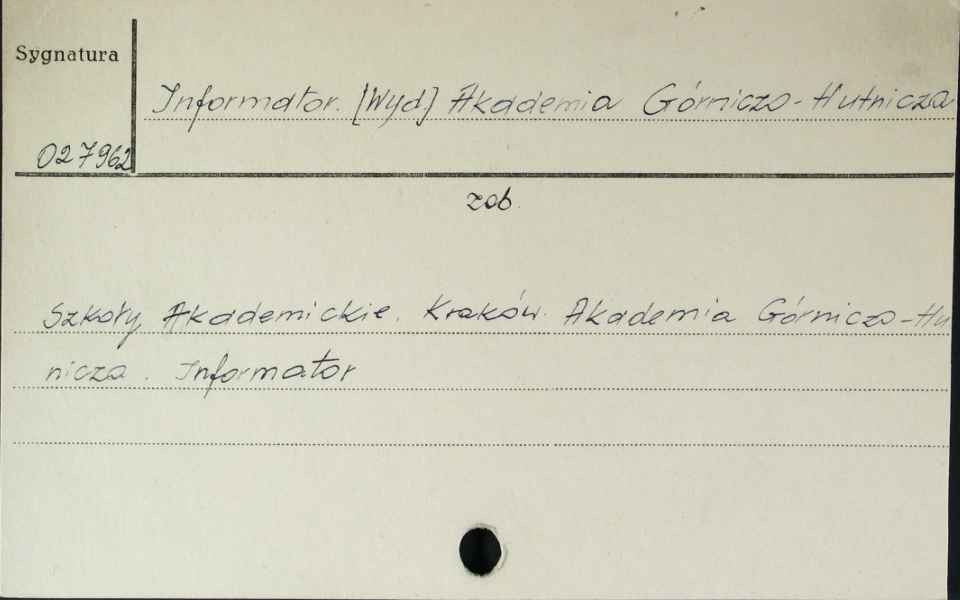 Sygnatura
Informator. [Wyd] Akademia Górniczo-Hutnicza
027962
zob.
Szkoły Akademickie. Kraków. Akademia Górniczo-Hu
nicza. Informator